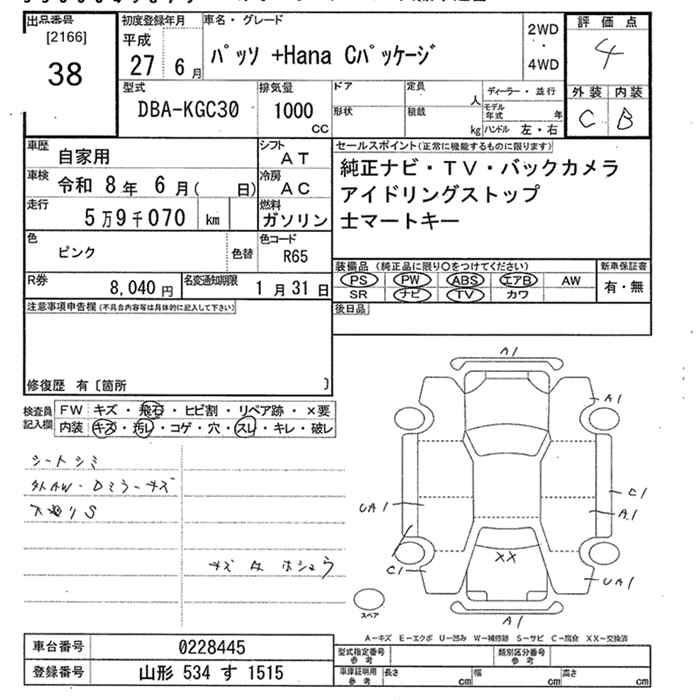 出品番号
[2166]
38
初度登録年月
平成
27 6月
車名・グレード
パッソ +Hana Cパッケージ
2WD
・
4WD
評価点
4
外装 内装
C B
型式
DBA-KGC30
排気量
1000
cc
ドア
形状
定員
人
積載
kg
ディーラー・並行
モデル年式 年
ハンドル 左・右
車歴
自家用
シフト
AT
車検
令和 8年 6月( 日)
冷房
AC
走行
5万9千070 km
燃料
ガソリン
色
ピンク
色替
色コード
R65
R券
8,040円
名変通知期限
1月31日
セールスポイント(正常に機能するものに限ります)
純正ナビ・TV・バックカメラ
アイドリングストップ
士マートキー
装備品 (純正品に限り○をつけてください)
PS PW ABS エアB AW
SR ナビ TV カワ
新車保証書
有・無
後日品
注意事項申告欄(不具合内容等は具体的に記入して下さい)
修復歴 有〔箇所 〕
検査員
記入欄
FW キズ・飛石・ヒビ割・リペア跡・×要
内装 キズ・汚レ・コゲ・穴・スレ・キレ・破レ
シートシミ
外AW・Dミラーキズ
キズ A ホシュウ
A1
A1
C1
A1
UA1
C1
XX
UA1
A1
スペア
A-キズ E-エクボ U-凹み W-補修跡 S-サビ C-腐食 XX-交換済
車台番号
0228445
登録番号
山形 534 す 1515
型式指定番号
参考
類別区分番号
参考
車庫証明用
参考
長さ cm
幅 cm
高さ cm